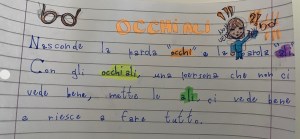 OCCHIALI
Nasconde la parola "occhi" e la parola "ali"
Con gli occhiali, una persona che non ci
vede bene, mette le ali, ci vede bene
e riesce a fare tutto.